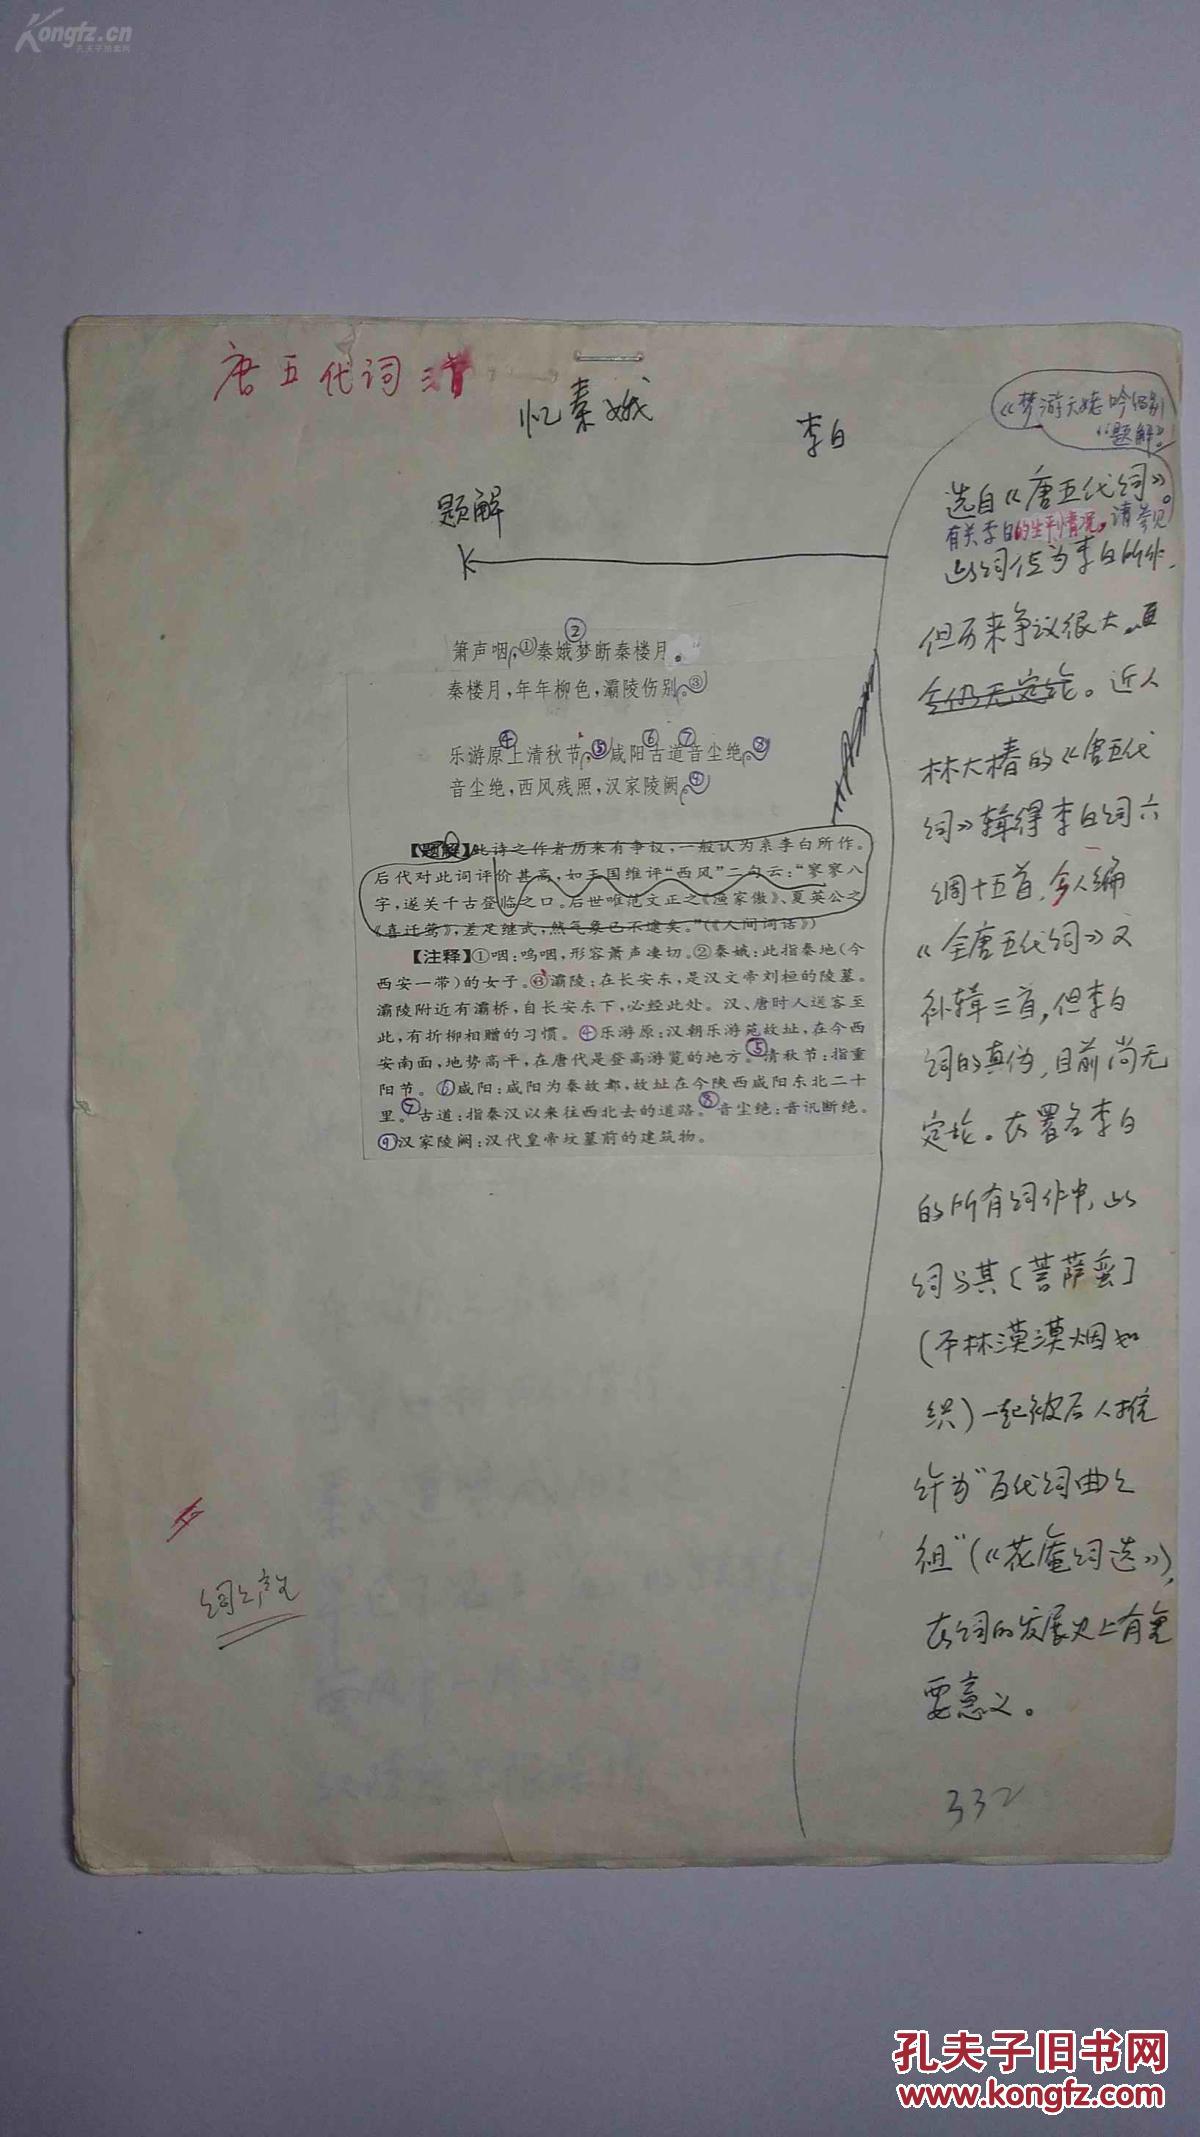 Kongfz.cn
孔夫子拍卖网
唐五代词三首
忆秦娥
李白
题解
箫声咽,①秦娥②梦断秦楼月。
秦楼月,年年柳色,灞陵伤别。③
乐游原④上清秋节,⑤咸阳⑥古道⑦音尘绝。⑧
音尘绝,西风残照,汉家陵阙。⑨
【题解】此诗之作者历来有争议,一般认为系李白所作。
后代对此词评价甚高,如王国维评“西风”二句云:“寥寥八
字,遂关千古登临之口。后世唯范文正之《渔家傲》、夏英公之
《喜迁莺》,差足继武,然气象已不逮矣。”(《人间词话》)
【注释】①咽:呜咽,形容箫声凄切。②秦娥:此指秦地(今
西安一带)的女子。③灞陵:在长安东,是汉文帝刘桓的陵墓。
灞陵附近有灞桥,自长安东下,必经此处。汉、唐时人送客至
此,有折柳相赠的习惯。④乐游原:汉朝乐游苑故址,在今西
安南面,地势高平,在唐代是登高游览的地方。⑤清秋节:指重
阳节。⑥咸阳:咸阳为秦故都,故址在今陕西咸阳东北二十
里。⑦古道:指秦汉以来往西北去的道路。⑧音尘绝:音讯断绝。
⑨汉家陵阙:汉代皇帝坟墓前的建筑物。
《梦游天姥吟留别》
“题解”。
选自《唐五代词》
有关李白的生平情况,请参见
此词传为李白所作,
但历来争议很大,直
今仍无定论。近人
林大椿的《唐五代
词》辑得李白词六
调十五首,今人编
《全唐五代词》又
补辑三首,但李白
词的真伪,目前尚无
定论。在署名李白
的所有词作中,此
词与其〔菩萨蛮〕
(平林漠漠烟如
织)一起被后人推
许为“百代词曲之
祖”(《花庵词选》),
在词的发展史上有重
要意义。
332
孔夫子旧书网
www.kongfz.com